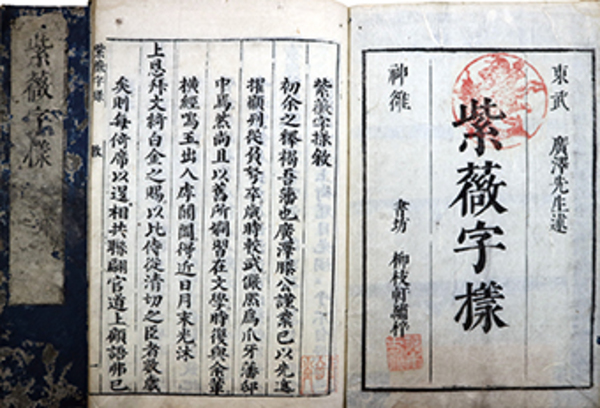 東武 廣澤先生述
紫薇字樣
神雒 書坊 柳枝軒繡梓
紫薇字樣敘
初余之釋褐吾藩也廣澤滕公謹業已以先進
擢顯列從負弩卒歲時較武儼然爲爪牙藩邸
中焉然尚且以舊所嫺習在文學時復與余輩
橫經寫玉出入序闥得近日月末光沐
上恩拜文綺白金之賜以比侍從清切之臣者數歲
矣則每倚席以退相共聯翩官道上顧語弗已
紫薇字樣 敘
紫薇字樣